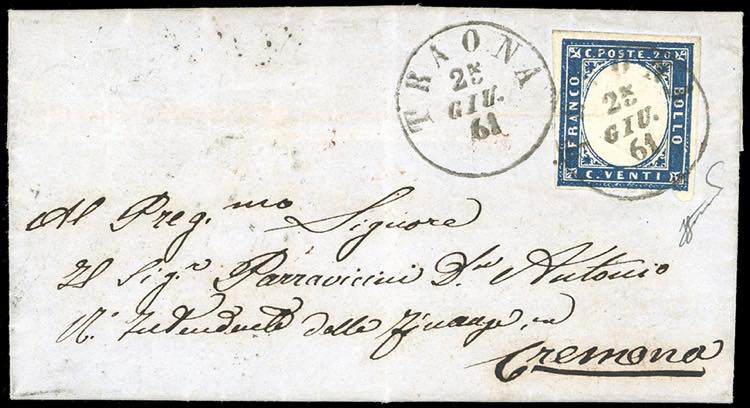 TRAONA
25
GIU.
61
C. POSTE. 20
FRANCO
BOLLO
C. VENTI
25
GIU.
61
Al Preg.mo Signore
Il Sig.r Parravicini D.n Antonio
R.o Intendente delle finanze, in
Cremona